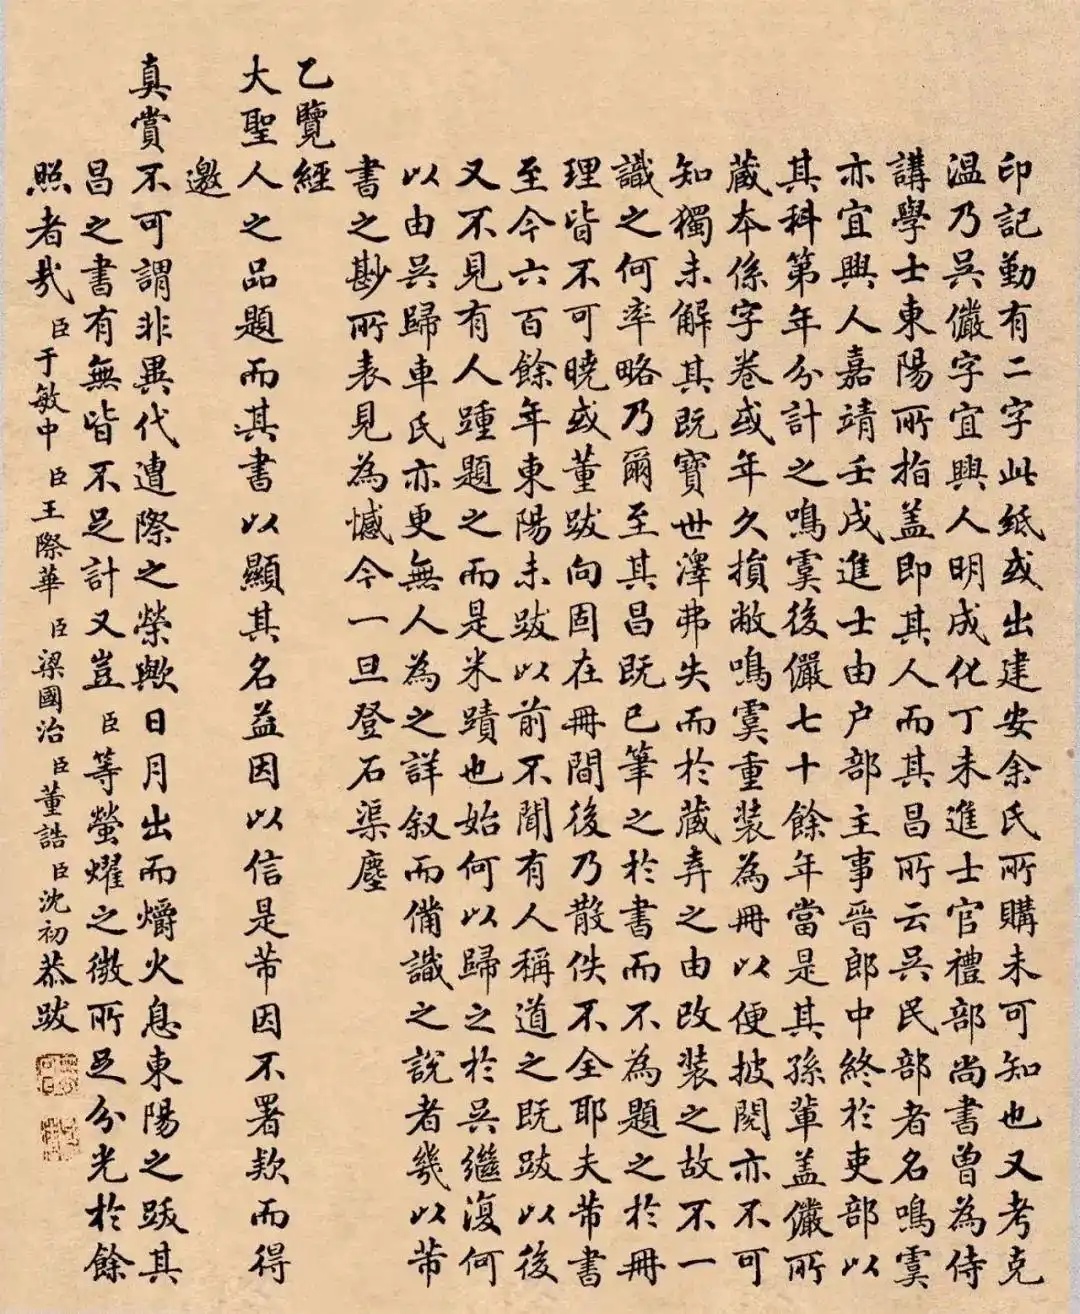 印記勤有二字此紙或出建安余氏所購未可知也又考克
溫乃吳儼字宜興人明成化丁未進士官禮部尚書曾為侍
講學士東陽所指蓋即其人而其昌所云吳民部者名鳴虞
亦宜興人嘉靖壬戌進士由户部主事晉郎中終於吏部以
其科第年分計之鳴虞後儼七十餘年當是其孫輩蓋儼所
藏本係字卷或年久損敝鳴虞重裝為冊以便披閱亦不可
知獨未解其既寶世澤弗失而於藏弆之由改裝之故不一
識之何率略乃爾至其昌既已筆之於書而不為題之於冊
理皆不可曉或董跋向固在冊間後乃散佚不全耶夫芾書
至今六百餘年東陽未跋以前不聞有人稱道之既跋以後
又不見有人踵題之而是米蹟也始何以歸之於吳繼復何
以由吳歸車氏亦更無人為之詳叙而備識之説者幾以芾
書之尠所表見為憾今一旦登石渠塵
乙覽經
大聖人之品題而其書以顯其名益因以信是芾因不署欵而得
邀
真賞不可謂非異代遭際之榮歟日月出而爝火息東陽之跋其
昌之書有無皆不足計又豈臣等螢燿之微所足分光於餘
照者哉臣于敏中臣王際華臣梁國治臣董誥臣沈初恭跋